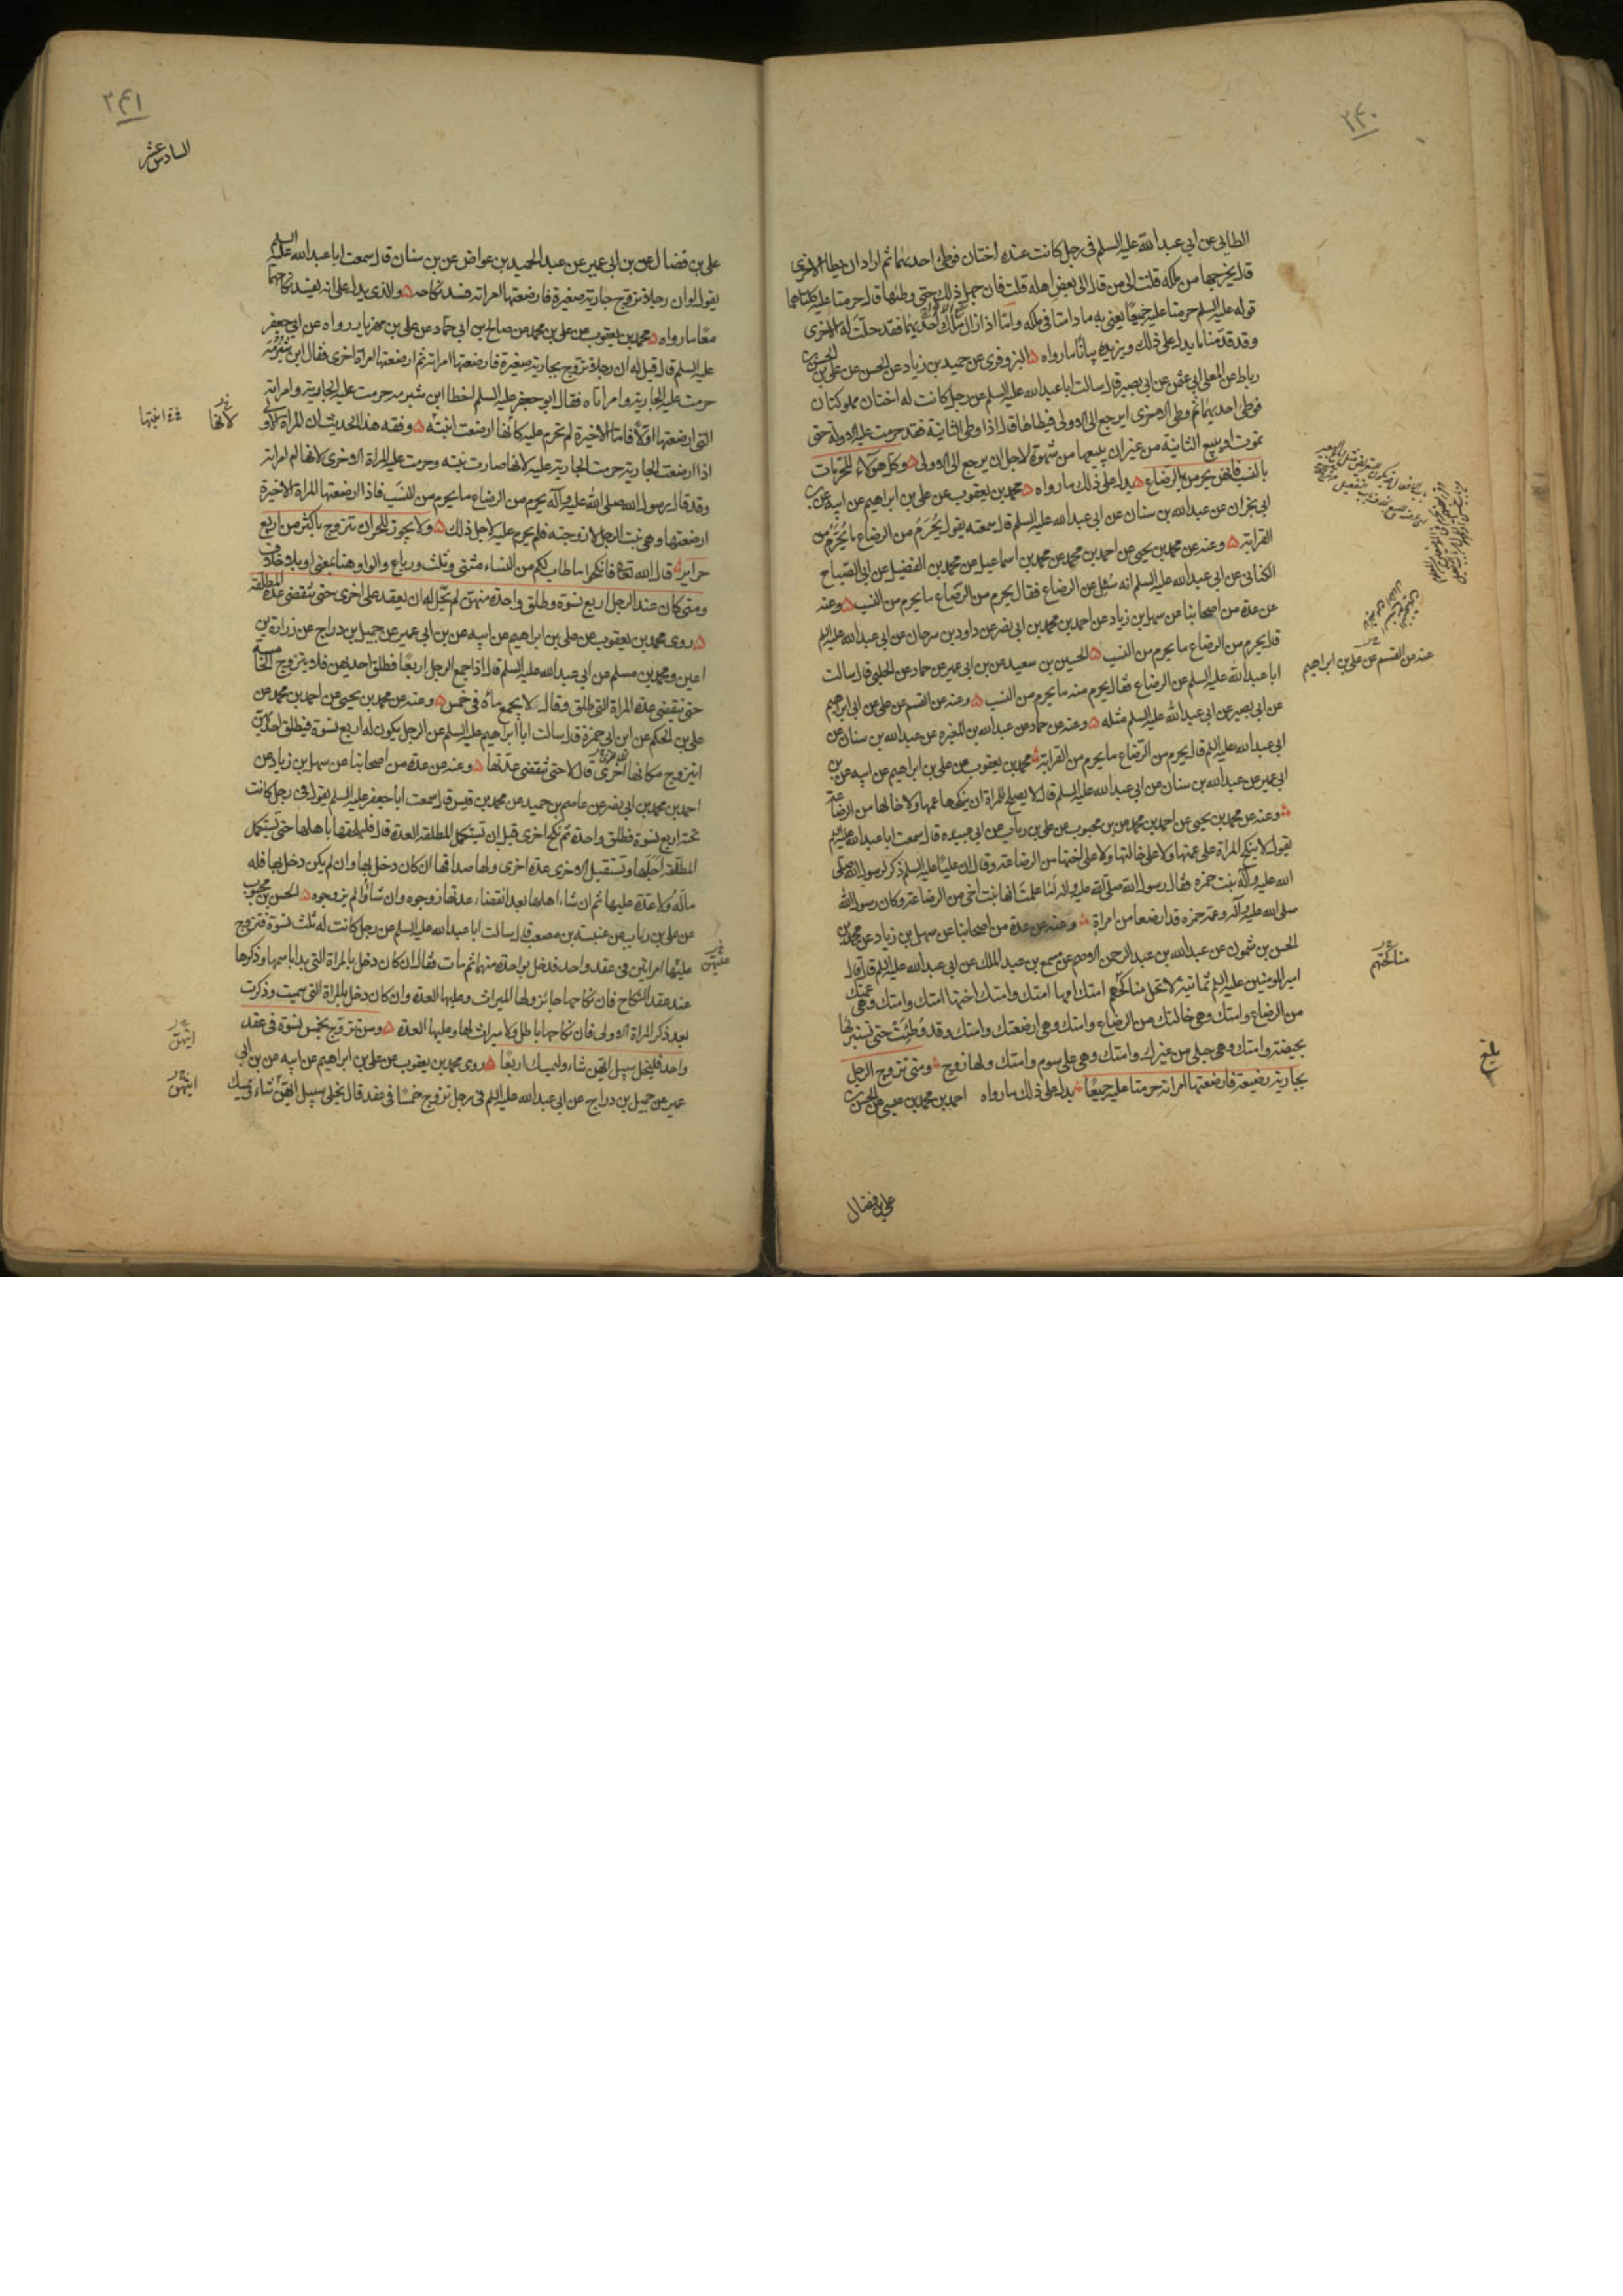 ٢٤٠
الطائي عن ابي عبد الله عليه السلم في رجل كانت عنده اختان فوطئ احديهما ثم اراد ان يطا الاخرى
قال يخرجها من ملكه قلت الى من قال الى بعض اهله قلت فان جهل ذلك حتى وطئها قال حرمتا عليه كلتاهما
قوله عليه السلم حرمتا عليه جميعًا يعني به ما دامتا في ملكه وامّا اذا زال ملك احديهما فقد حلّت له الاخرى
وقد قدّمنا ما يدل على ذلك ويزيده بيانًا ما رواه البزوفري عن حميد بن زياد عن الحسن عن علي بن
رباط عن المعلى ابي عثمن عن ابي بصير قال سالت ابا عبد الله عليه السلم عن رجل كانت له اختان مملوكتان
فوطئ احديهما ثم وطئ الاخرى ايرجع الى الاولى فيطاها قال اذا وطئ الثانية فقد حرمت عليه الاولة حتى
تموت او يبيع الثانية من غير ان يبيعها من شهوة لاجل ان يرجع الى الاولى وكل هؤلاء المحرمات
بالنسب فانهن يحرمن بالرضاع يدل على ذلك ما رواه محمد بن يعقوب عن علي بن ابراهيم عن ابيه عن
ابي نجران عن عبد الله بن سنان عن ابي عبد الله عليه السلم قال سمعته يقول يُحَرّم من الرضاع ما يُحَرّم من
القرابة وعنه عن محمد بن يحيى عن احمد بن محمد عن محمد بن اسماعيل عن محمد بن الفضيل عن ابي الصباح
الكناني عن ابي عبد الله عليه السلم انه سُئِل عن الرضاع فقال يحرم من الرّضاع ما يحرم من النسب وعنه
عن عدة من اصحابنا عن سهل بن زياد عن احمد بن محمد بن ابي نصر عن داود بن سرحان عن ابي عبد الله عليه السلم
قال يحرم من الرضاع ما يحرم من النسب الحسين بن سعيد عن بن ابي عمير عن حماد عن الحلبي قال سالت
ابا عبد الله عليه السلم عن الرضاع فقال يحرم منه ما يحرم من النسب وعنه عن القسم عن علي عن ابي ابراهيم
عن ابي بصير عن ابي عبد الله عليه السلم مثله وعنه عن حماد عن عبد الله بن المغيرة عن عبد الله بن سنان عن
ابي عبد الله عليه السلم قال يحرم من الرّضاع ما يحرم من القرابة محمد بن يعقوب عن علي بن ابراهيم عن ابيه عن بن
ابي عمير عن عبد الله بن سنان عن ابي عبد الله عليه السلم قال لا يصلح للمراة ان ينكحها عمها ولا خالها من الرضاعة
وعنه عن محمد بن يحيى عن احمد بن محمد عن بن محبوب عن علي بن رياب عن ابي عبيده قال سمعت ابا عبد الله عليه السلم
يقول لا ينكح المراة على عمتها ولا على خالتها ولا على اختها من الرضاعة وقال ان عليًا عليه السلم ذكر لرسول الله صلى
الله عليه وآله بنت حمزه فقال رسول الله صلى الله عليه واله امَا علمتَ انها بنت اخي من الرضاعة وكان رسول الله
صلى الله عليه وآله وعمه حمزه قد ارضعا من امراة وعنه عن عدة من اصحابنا عن سهل بن زياد عن محمد بن
الحسن بن شمون عن عبد الله بن عبد الرحمن الاصم عن مسمع بن عبد الملك عن ابي عبد الله عليه السلم قال قال
امير المومنين عليه السلم ثمانية لا تحل مناكحتهم امتك امها امتك وامتك اختها امتك وامتك وهي عمتك
من الرضاع وامتك وهي خالتك من الرضاع وامتك وهي ارضعتك وامتك وقد وُطِئَتْ حتى تستبرئها
بحيضة وامتك وهي حبلى من غيرك وامتك وهي على سوم وامتك ولها زوج ومتى تزوج الرجل
بجارية رضيعة فارضعتها امراته حرمتا عليه جميعًا يدل على ذلك ما رواه احمد بن محمد بن عيسى عن الحسن بن
عنه عن القسم عن علي بن ابراهيم
مناكحتهم
بلغ
علي بن فضال
٢٤١
السادس عشر
علي بن فضال عن بن ابي عمير عن عبد الحميد بن عواض عن بن سنان قال سمعت ابا عبد الله عليه السلم
يقول لو ان رجلا تزوج جارية صغيرة فارضعتها امراته فسد نكاحه والذي يدل على انه يفسد نكاحهما
معًا ما رواه محمد بن يعقوب عن علي بن محمد عن صالح بن ابي حماد عن علي بن مهزيار رواه عن ابي جعفر
عليه السلم قال قيل له ان رجلا تزوج بجارية صغيرة فارضعتها امراته ثم ارضعتها امراة اخرى فقال ابن شُبْرُمَة
حرمت عليه الجارية وامراتاه فقال ابو جعفر عليه السلم اخطا ابن شبرمه حرمت عليه الجارية وامراته
التي ارضعتها اولاً فامّا الاخيرة لم تحرم عليه كانها ارضعت ابنته وفقه هذا الحديث ان المراة الاولى
اذا ارضعت الجارية حرمت الجارية عليه لانها صارت بنته وحرمت عليه المراة الاخرى لانها ام امراته
وقد قال رسول الله صلى الله عليه وآله يحرم من الرضاع ما يحرم من النسب فاذا ارضعتها المراة الاخيرة
ارضعتها وهي بنت الرجل لا زوجته فلم يحرم عليه لاجل ذلك ولا يجوز للحر ان تتزوج باكثر من اربع
حراير قال الله تعالى فانكحوا ما طاب لكم من النساء مثنى وثلث ورباع والواو هنا بمعنى او بلا خلاف
ومتى كان عند الرجل اربع نسوة وطلق واحدة منهن لم يحل له ان يعقد على اخرى حتى تنقضي عدة المطلقة
روى محمد بن يعقوب عن علي بن ابراهيم عن ابيه عن بن ابي عمير عن جميل بن دراج عن زرارة بن
اعين ومحمد بن مسلم عن ابي عبد الله عليه السلم قال اذا جمع الرجل اربعًا فطلق احديهن فلا يتزوج الخامسة
حتى تنقضي عدة المراة التي طلق وقال لا يجمع ماءه في خمس وعنه عن محمد بن يحيى عن احمد بن محمد عن
علي بن الحكم عن ابن ابي حمزة قال سالت ابا ابراهيم عليه السلم عن الرجل يكون له اربع نسوة فيطلق احديهن
ايتزوج مكانها اخرى قال لا حتى تنقضي عدتها وعنه عن عدة من اصحابنا عن سهل بن زياد عن
احمد بن محمد بن ابي نصر عن عاصم بن حميد عن محمد بن قيس قال سمعت ابا جعفر عليه السلم يقول في رجل كانت
تحته اربع نسوة فطلق واحدة ثم نكح اخرى قبل ان تستكمل المطلقة العدة قال فليلحقها باهلها حتى تستكمل
المطلقة اجلها وتستقبل الاخرى عدة اخرى ولها صداقها ان كان دخل بها وان لم يكن دخل بها فله
ماله ولا عدة عليها ثم ان شاء اهلها بعد انقضاء عدتها زوجوه وان شاؤا لم يزوجوه الحسن بن محبوب
عن علي بن رياب عن عنبسة بن مصعب قال سالت ابا عبد الله عليه السلم عن رجل كانت له ثلث نسوة فتزوج
عليها امراتين في عقد واحد فدخل بواحدة منهما ثم مات فقال ان كان دخل بالمراة التي بدا باسمها وذكرها
عند عقد النكاح فان نكاحها جائز ولها الميراث وعليها العدة وان كان دخل بالمراة التي سميت وذكرت
بعد ذكر المراة الاولى فان نكاحها باطل ولا ميراث لها وعليها العدة ومن تزوج بخمس نسوة في عقد
واحد فليخل سبيل ايتهن شاء وليمسك اربعًا روى محمد بن يعقوب عن علي بن ابراهيم عن ابيه عن بن ابي
عمير عن جميل بن دراج عن ابي عبد الله عليه السلم في رجل تزوج خمسًا في عقد قال يخلي سبيل ايتهن شاء ويمسك
لانها
ابنتها
عليهن
ايتهن
ايتهن